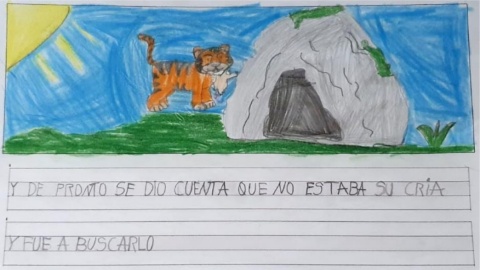 Y DE PRONTO SE DIO CUENTA QUE NO ESTABA SU CRÍA
Y FUE A BUSCARLO